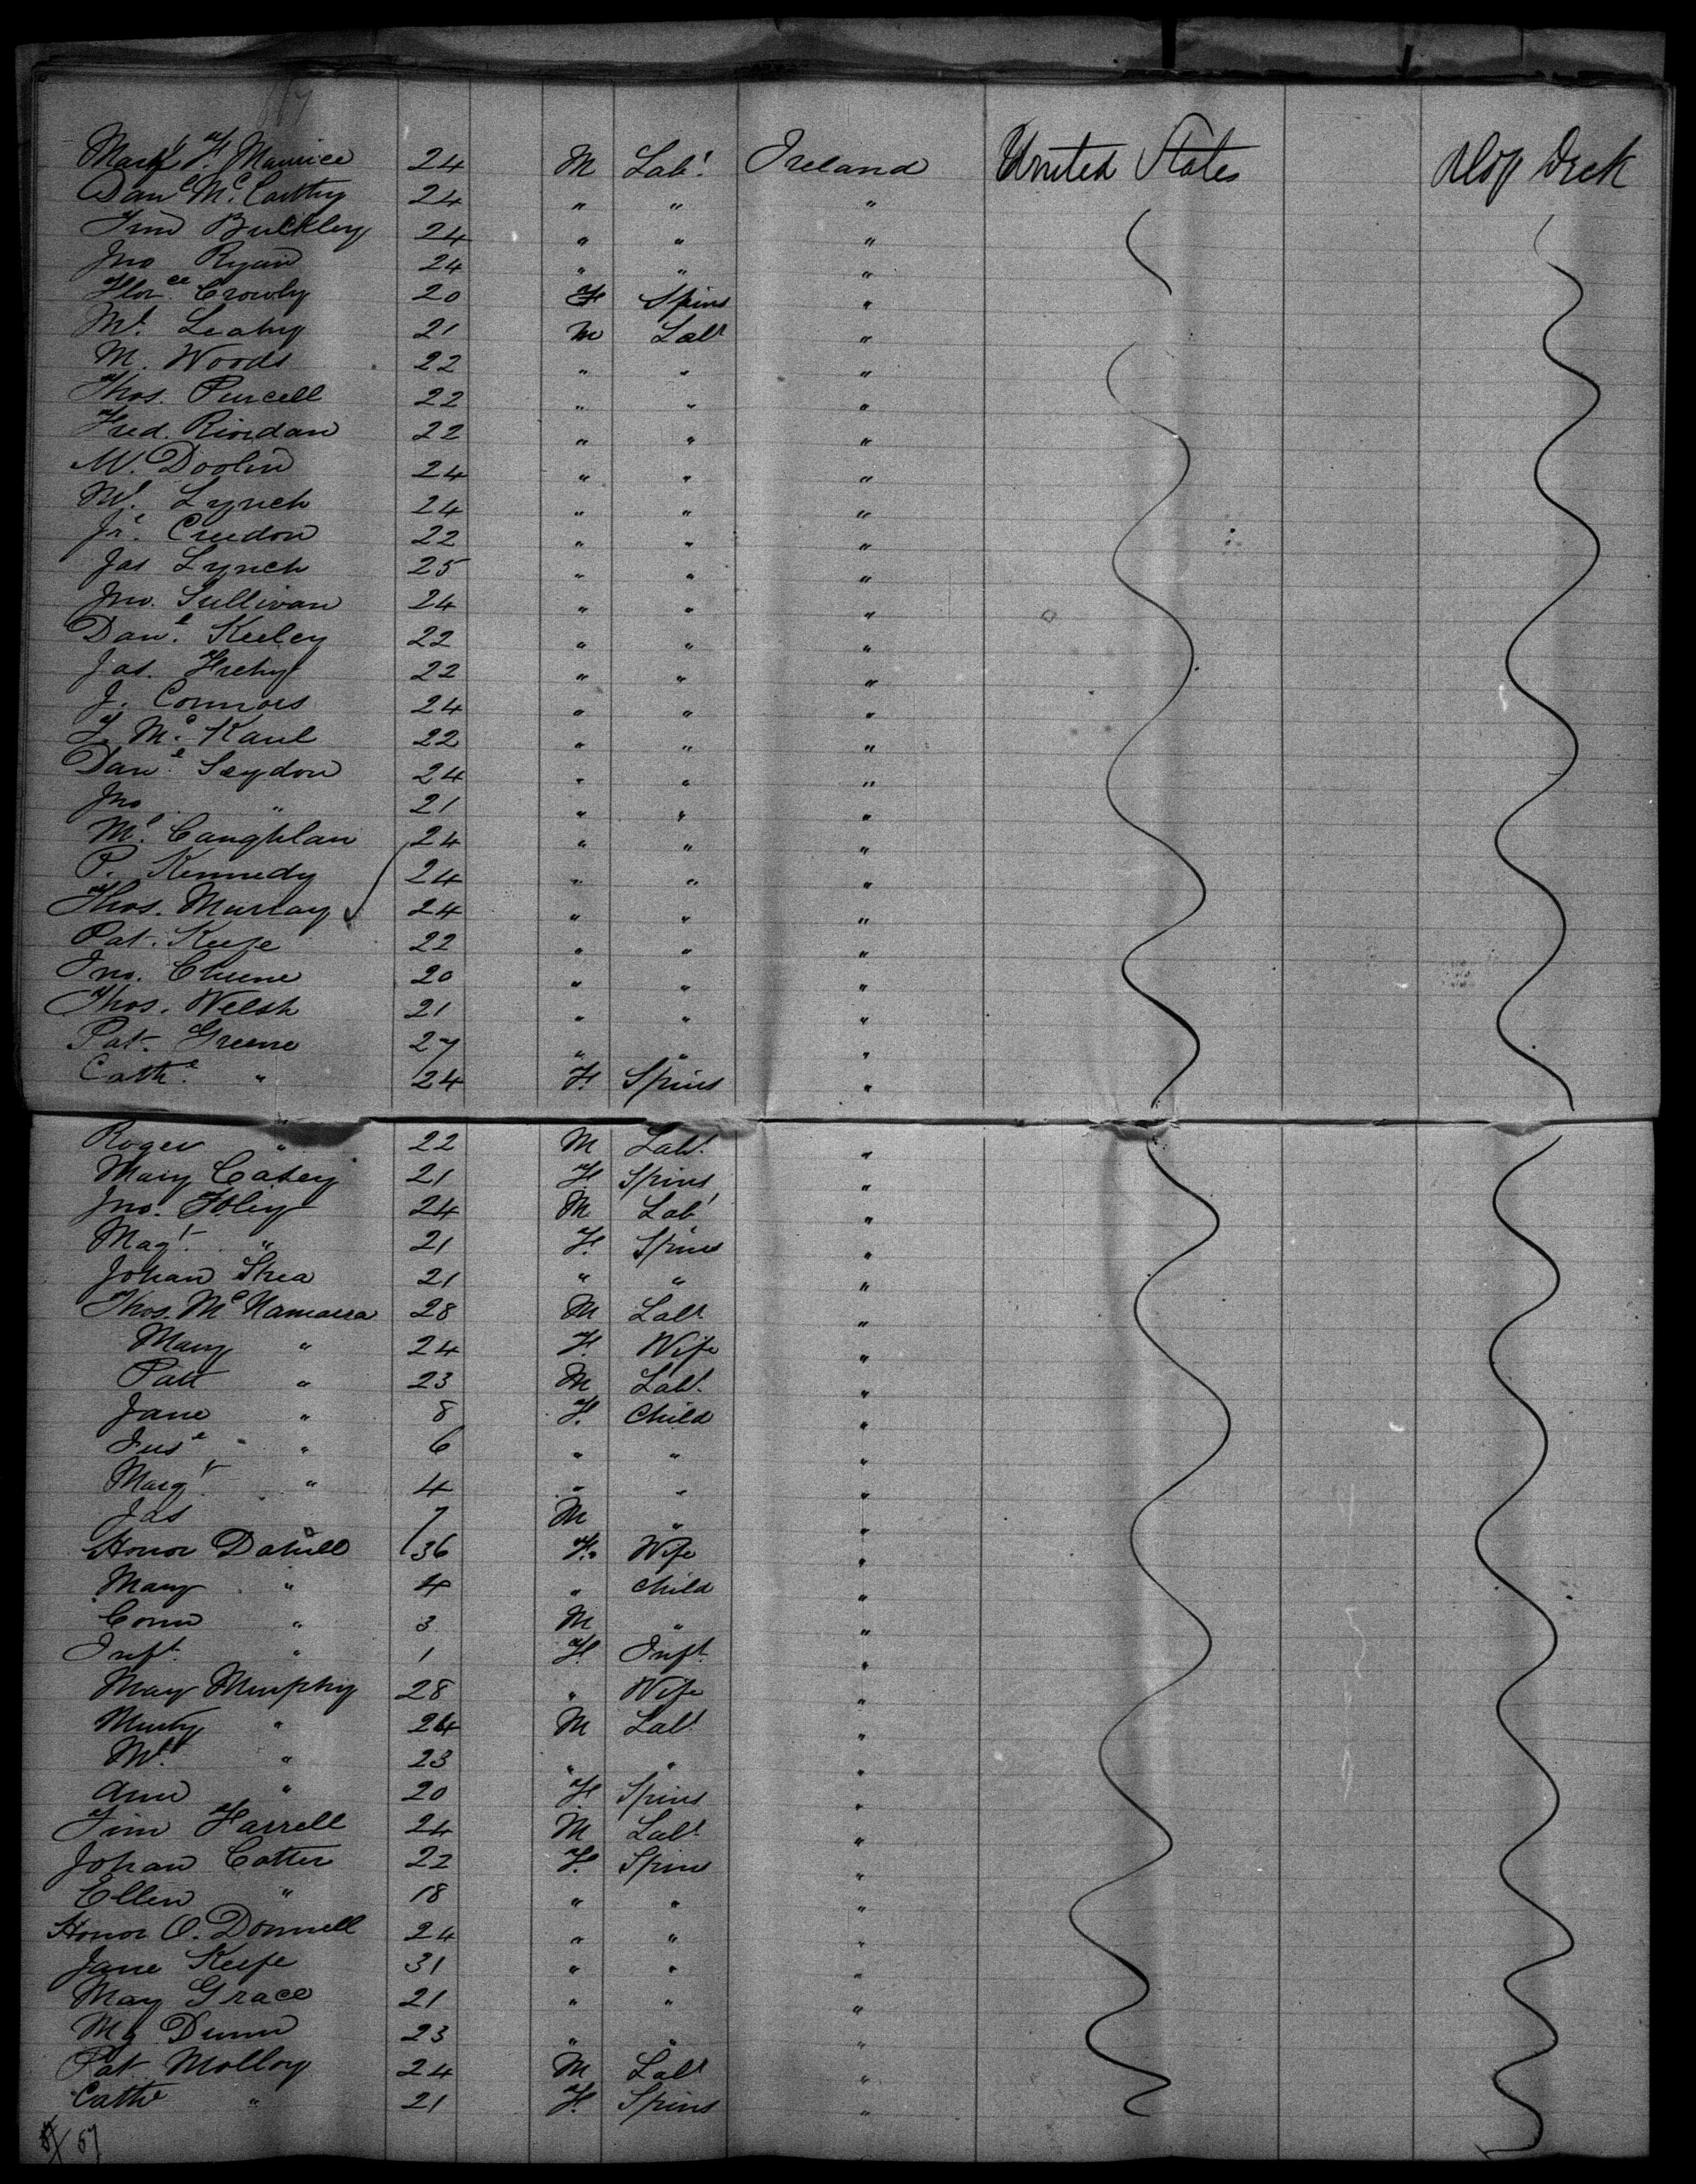 Maurice 24 M Lab^r. Ireland United States Slop Deck
Dan^l M^c.Carthy 24 " " "
Tim Buckley 24 " " "
Jno Ryan 24 " " "
Flor^ce Crowly 20 F Spins "
M^l. Leahy 21 M Lab^r "
M. Woods 22 " " "
Thos. Purcell 22 " " "
Fred. Riordan 22 " " "
W. Doolin 24 " " "
M^l. Lynch 24 " " "
Creedon 22 " " "
Jas Lynch 25 " " "
Jno. Sullivan 24 " " "
Dan^l. Keeley 22 " " "
Jas. 22 " " "
J. Connors 24 " " "
M^c. Kaul 22 " " "
Dan^l. Seydon 24 " " "
Jno " 21 " " "
M^l. Caughlan 24 " " "
P. Kennedy 24 " " "
Thos. Murray 24 " " "
Pat. Keefe 22 " " "
Jno. 20 " " "
Thos. Welsh 21 " " "
Pat. Greene 27 " " "
Cath^e. " 24 F. Spins "
Roger " 22 M Lab^r. "
Mary Casey 21 F. Spins "
Jno. Foley 24 M Lab^r "
Mag^t. " 21 F. Spins "
Johan Shea 21 " " "
Thos. M^c Namarra 28 M Lab^r "
Mary " 24 F. Wife "
Patt " 23 M Lab^r. "
Jane " 8 F. Child "
" 6 " " "
Marg^t. " 4 " " "
Jas 7 M " "
Honor Dahill 36 F. Wife "
Mary " 4 " Child "
Conn " 3 M " "
Inft. " 1 F. Inft. "
May Murphy 28 " Wife "
Murty " 24 M Lab^r "
M^l. " 23 " " "
Ann " 20 F. Spins "
Tim Farrell 24 M Lab^r. "
Johan Cotter 22 F. Spins "
Ellen " 18 " " "
Honor O. Donnell 24 " " "
Jane Keefe 31 " " "
May Grace 21 " " "
Mg Dunn 23 " " "
Pat Molloy 24 M Lab^r "
Cath^e " 21 F. Spins "
57